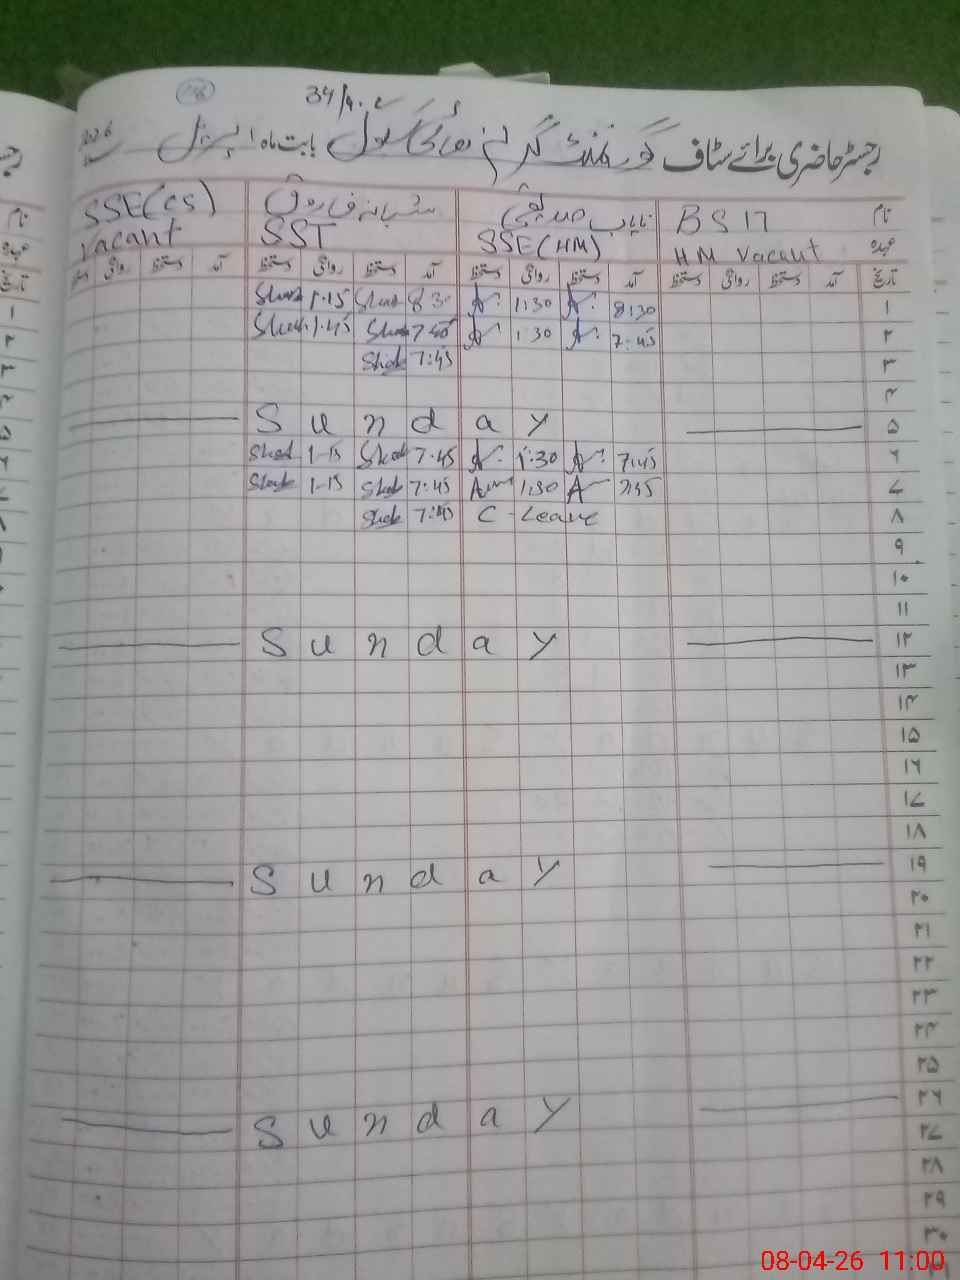 34/4.L
رجسٹر حاضری برائے سٹاف گورنمنٹ گرلز ہائی سکول بابت ماہ اپریل 2026
نام BS 17 نایاب صدیقی شبانہ فاروق SSE(CS)
عہدہ HM Vacant SSE(HM) SST Vacant
تاریخ آمد دستخط روانگی دستخط آمد دستخط روانگی دستخط آمد دستخط روانگی دستخط آمد دستخط روانگی دستخط
۱ 8:30 1:30 8:30 1.15
۲ 7:45 1:30 1.45
۳ 7:45
۴
۵ Sunday
۶ 7:45 1:30 7.45 1-15
۷ 1:30 7:45 1-15
۸ C-Leave 7:45
۹
۱۰
۱۱
۱۲ Sunday
۱۳
۱۴
۱۵
۱۶
۱۷
۱۸
۱۹ Sunday
۲۰
۲۱
۲۲
۲۳
۲۴
۲۵
۲۶ Sunday
۲۷
۲۸
۲۹
۳۰
08-04-26 11:00